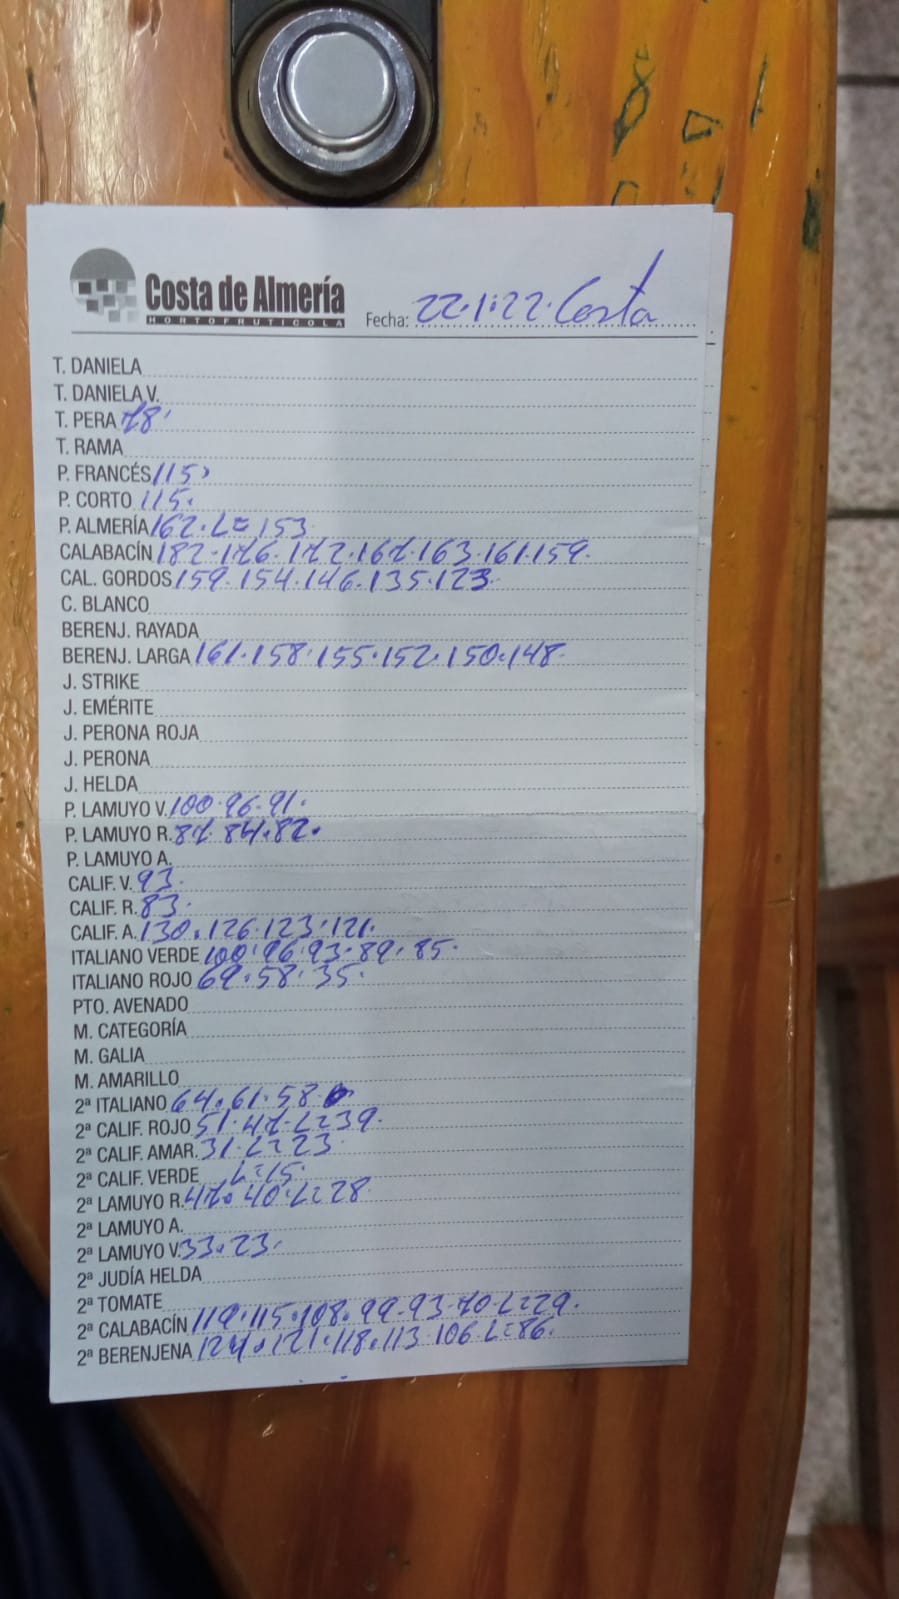 Costa de Almería
HORTOFRUTICOLA
Fecha: 22.1.22. Costa
T. DANIELA
T. DANIELA V.
T. PERA 78.
T. RAMA
P. FRANCÉS 115.
P. CORTO 115.
P. ALMERÍA 162. L= 153
CALABACÍN 182. 176. 172. 167. 163. 161. 159.
CAL. GORDOS 159. 154. 146. 135. 123.
C. BLANCO
BERENJ. RAYADA
BERENJ. LARGA 161. 158. 155. 152. 150. 148.
J. STRIKE
J. EMÉRITE
J. PERONA ROJA
J. PERONA
J. HELDA
P. LAMUYO V. 100. 96. 91.
P. LAMUYO R. 87. 84. 82.
P. LAMUYO A.
CALIF. V. 93.
CALIF. R. 83.
CALIF. A. 130. 126. 123. 121.
ITALIANO VERDE 100. 96. 93. 89. 85.
ITALIANO ROJO 69. 58. 35.
PTO. AVENADO
M. CATEGORÍA
M. GALIA
M. AMARILLO
2ª ITALIANO 64. 61. 58
2ª CALIF. ROJO 51. 47. L=39.
2ª CALIF. AMAR. 31. L=23.
2ª CALIF. VERDE L=15.
2ª LAMUYO R. 47. 40. L=28.
2ª LAMUYO A.
2ª LAMUYO V. 33. 23.
2ª JUDÍA HELDA
2ª TOMATE
2ª CALABACÍN 119. 115. 108. 99. 93. 70. L=29.
2ª BERENJENA 124. 121. 118. 113. 106. L=86.